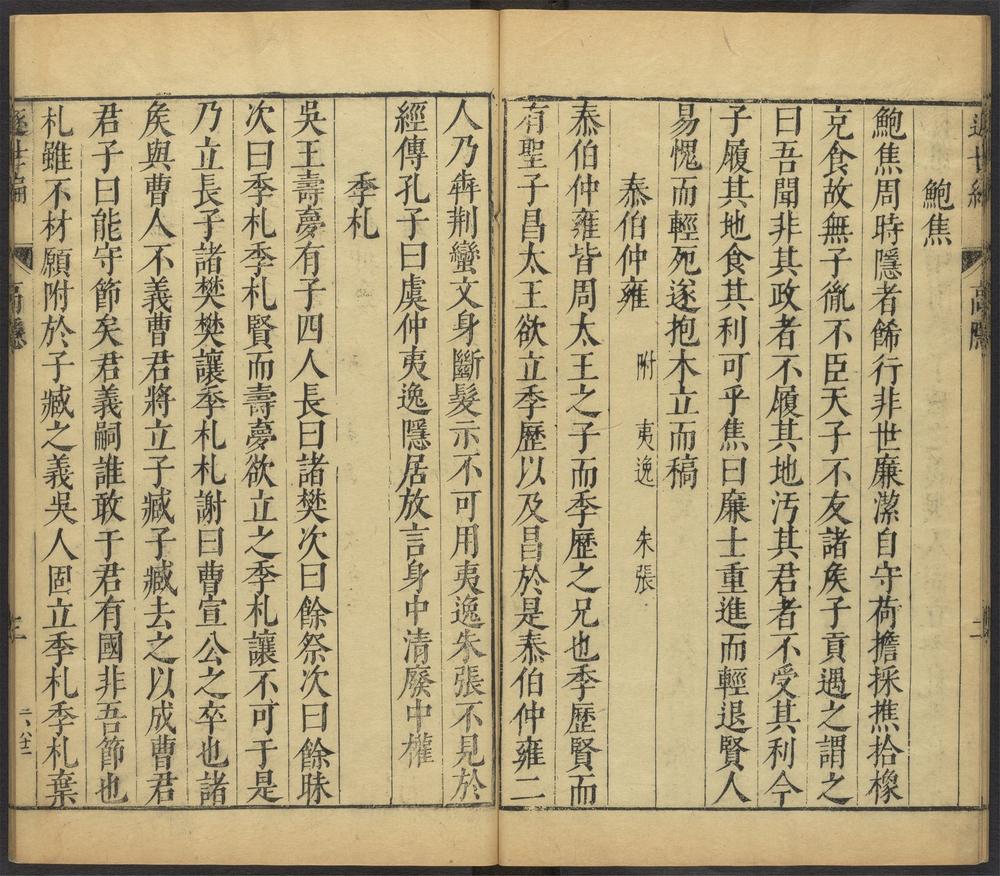 鮑焦
鮑焦周時隱者飾行非世廉潔自守荷擔採撨拾橡
克食故無子㣧不臣天子不友諸矦子貢遇之謂之
曰吾聞非其政者不履其地汚其君者不受其利今
子履其地食其利可乎焦曰廉士重進而輕退賢人
易愧而輕死遂抱木立而稿
泰伯仲雍 附 夷逸 朱張
泰伯仲雍皆周太王之子而季歷之兄也季歷賢而
有聖子昌太王欲立季歷以及昌於是泰伯仲雍二
人乃犇荆蠻文身斷髮示不可用夷逸朱張不見於
經傳孔子曰虞仲夷逸隱居放言身中清廢中權
季札
吳王壽夢有子四人長曰諸樊次曰餘祭次曰餘昧
次曰季札季札賢而壽夢欲立之季札讓不可于是
乃立長子諸樊樊讓季札札謝曰曹宣公之卒也諸
矦與曹人不義曹君將立子臧子臧去之以成曹君
君子曰能守節矣君義嗣誰敢干君有國非吾節也
札雖不材願附於子臧之義吳人固立季札季札棄